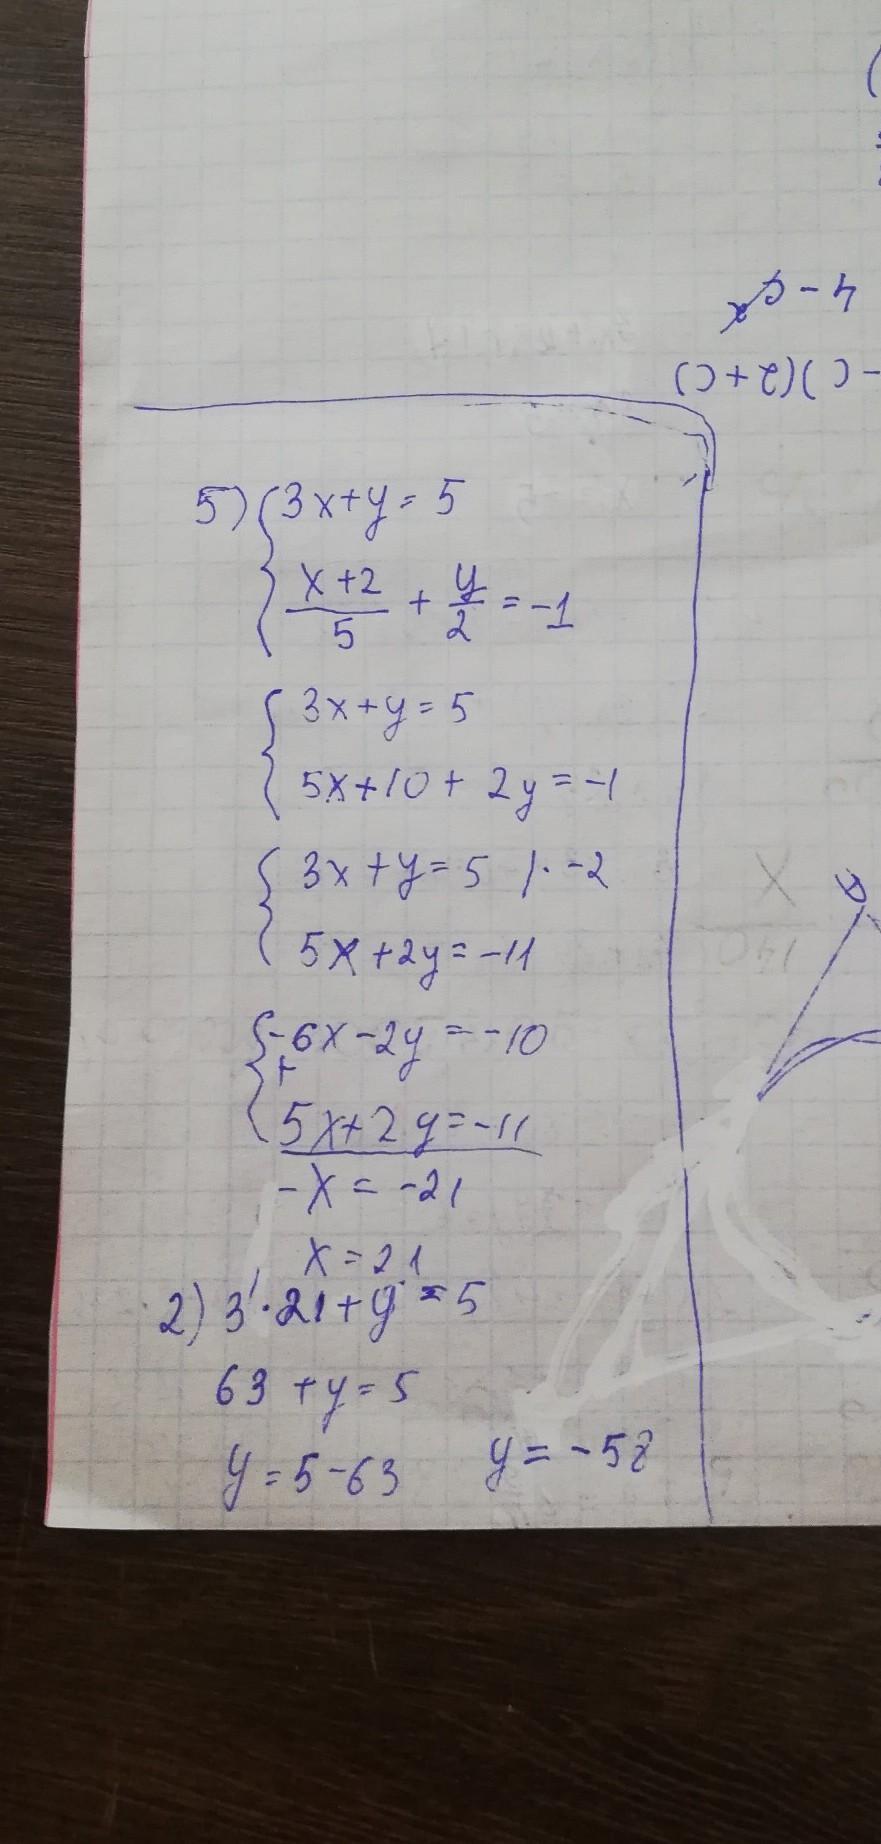 4-c²
-c)(2+c)
5) { 3x+y=5
x+2/5 + y/2 = -1
{ 3x+y=5
5x+10+2y=-1
{ 3x+y=5 |·-2
5x+2y=-11
{ -6x-2y=-10
+
5x+2y=-11
-x=-21
x=21
2) 3·21+y=5
63+y=5
y=5-63 y=-58